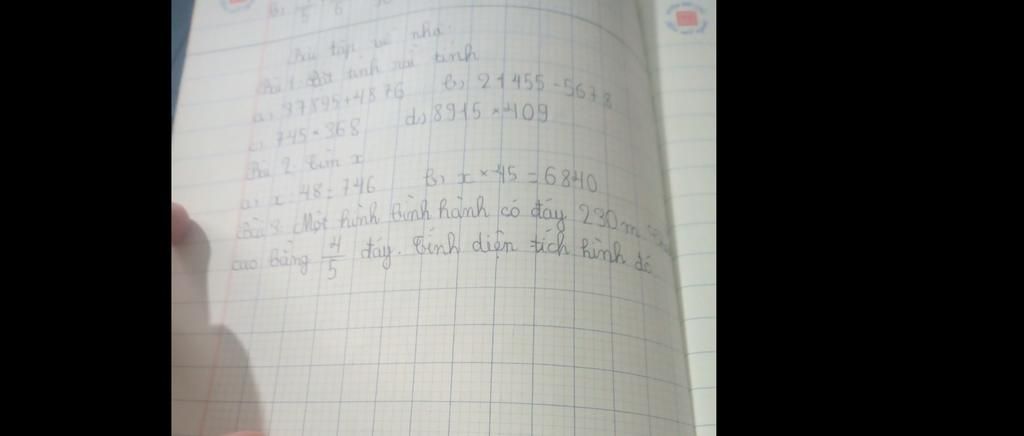 b,
5 6
Bài tập về nhà:
Bài 1. Đặt tính rồi tính
a, 37895+4876 b, 21455-5678
c, 745×368 d, 8915×409
Bài 2. Tìm x
a, x : 48 = 746 b, x × 45 = 6840
Bài 3: Một hình bình hành có đáy 230m
cao bằng 4/5 đáy. Tính diện tích hình đó